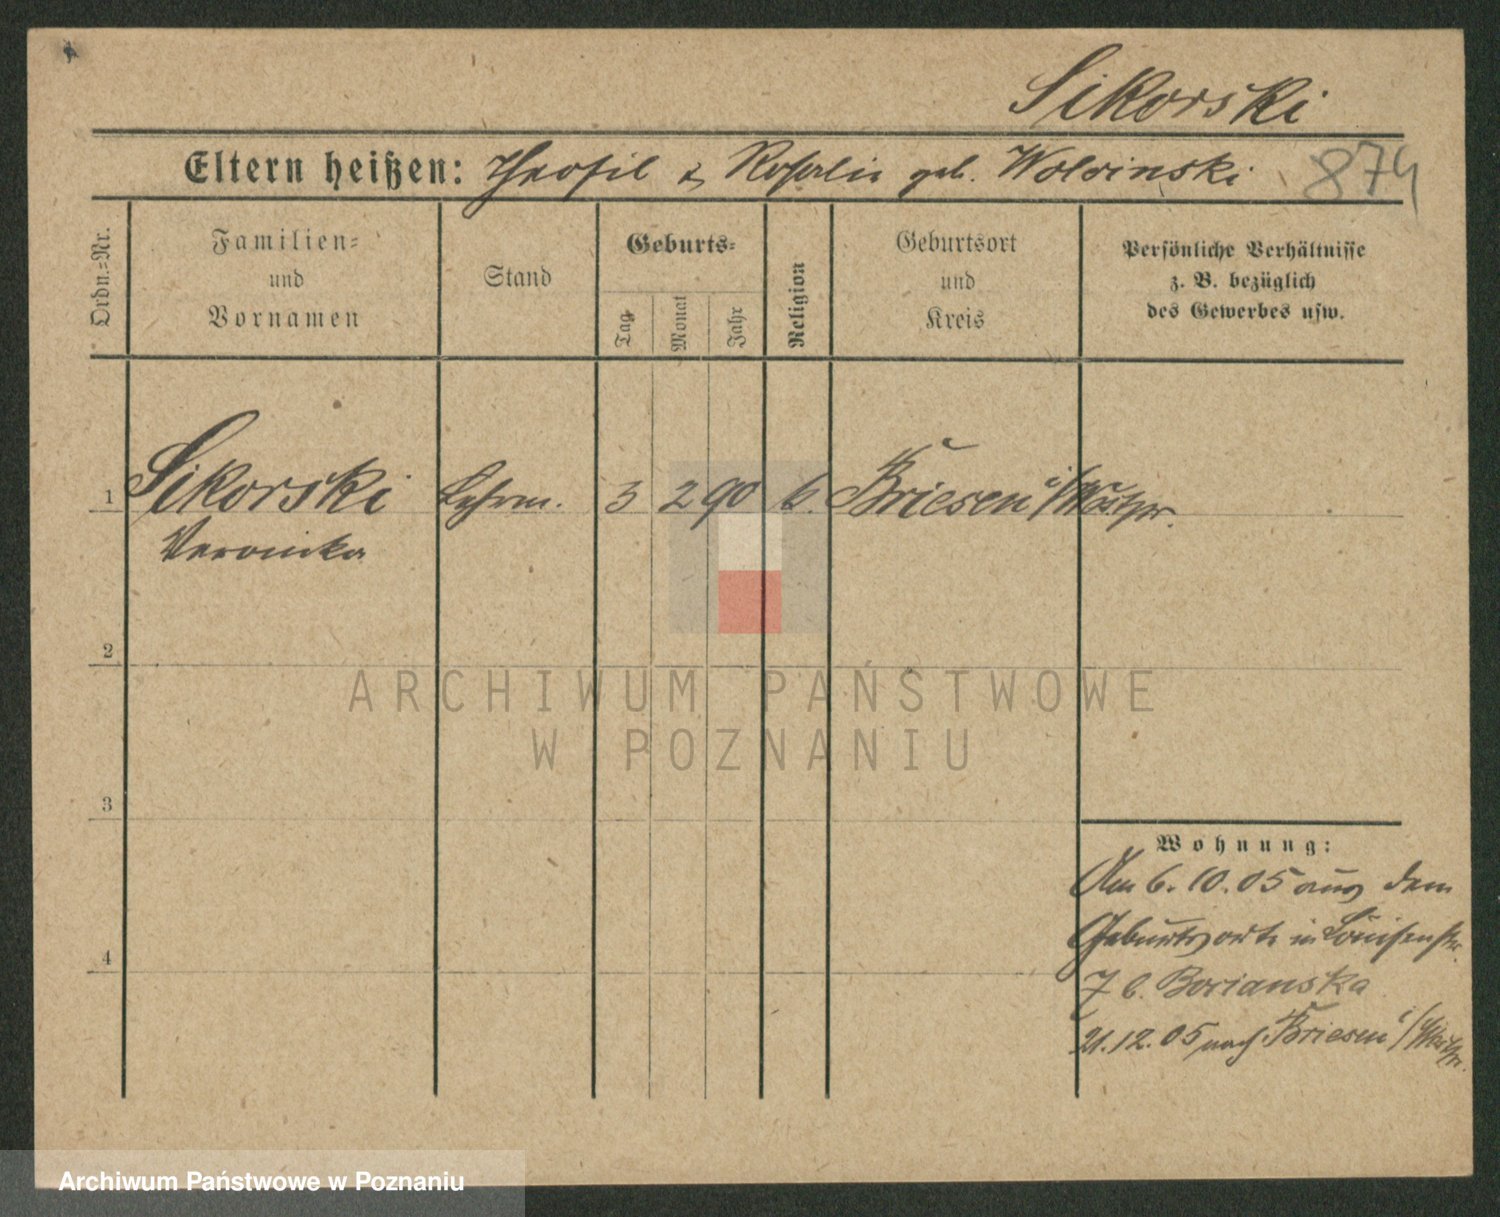 Sikorski
Eltern heißen: Theofil & Rosalie geb. Wolwinski 874
Ordn.=Nr.
Familien=
und
Vornamen
Stand
Geburts=
Tag
Monat
Jahr
Religion
Geburtsort
und
Kreis
Persönliche Verhältnisse
z. B. bezüglich
des Gewerbes usw.
1 Sikorski 3 2 90 Briesen i/Westpr.
Veronika
2
3
4
Wohnung:
Am 6. 10. 05 aus dem
Geburtsorte in Louisenstr.
7 b. Borianska
21. 12. 05 nach Briesen i/Westpr.
ARCHIWUM PAŃSTWOWE
W POZNANIU
Archiwum Państwowe w Poznaniu